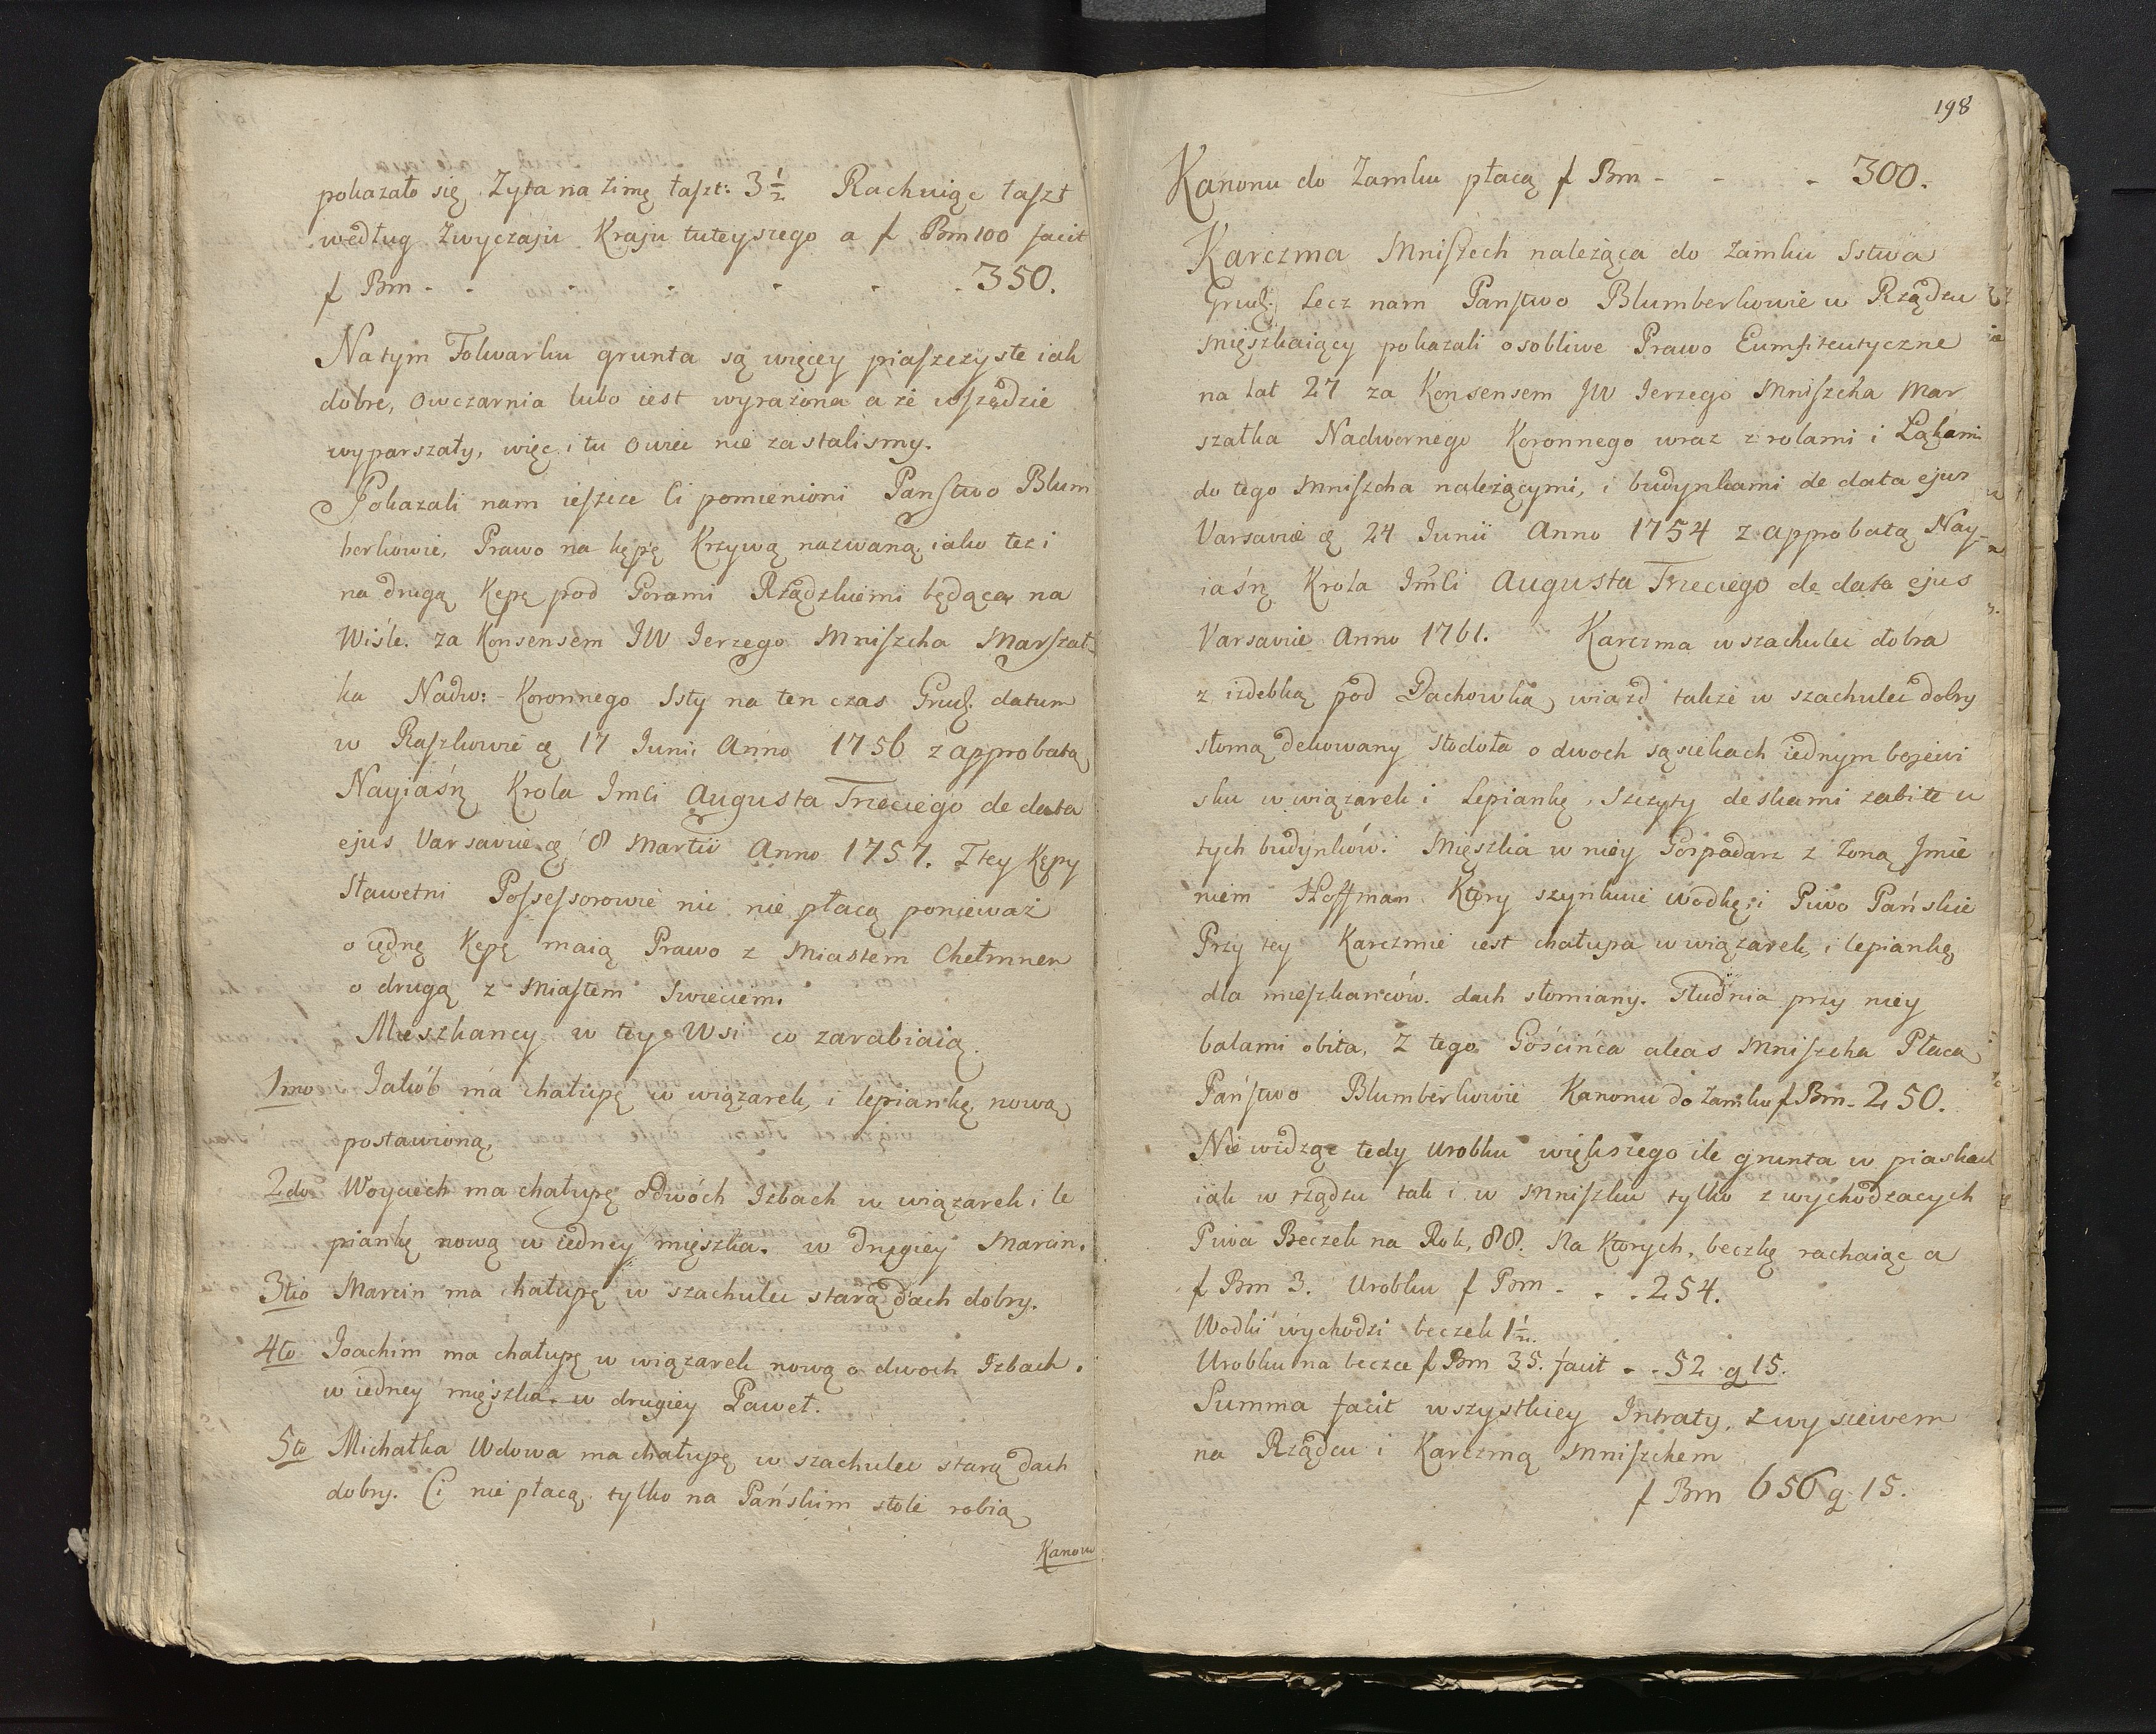 pokazało się Zyta na zimę łaszt: 3 1/2 Rachuiąc łaszt
według Zwyczaju Kraju tuteyszego a f Bm 100 facit
f Bm - - - - - - - 350.
Na tym Folwarku grunta są więcey piaszczyste iak
dobre, Owczarnia lubo iest wyrażona a że wszędzie
wyparszały, więc i tu owiec nie zastalismy.
Pokazali nam ieszcze Ci pomienioni Państwo Blum
berkowie, Prawo na kępę Krzywą nazwaną iako też i
na drugą Kępę pod Gorami Rządzkiemi będącą na
Wiśle. za Konsensem JW Jerzego Mniszcha Marszał-
ka Nadw: Koronnego Ssty na ten czas Grudz. datum
w Raszkowie 17 Junii Anno 1756 z approbatą
Nayiaśn Krola Jmci Augusta Trzeciego de data
ejus Varsavie 8 Martii Anno 1757. Z tey Kępy
Sławetni Possessorowie nic nie płacą ponieważ
o iednę Kępę maią Prawo z Miastem Chełmnem
o drugą z Miastem Swieciem.
Mieszkancy w tey Wsi co zarabiaią.
1mo Jakób ma chałupę w wiązarek, i lepiankę nową
postawioną
2do Woyciech ma chałupę o dwóch Izbach w wiązarek i le
piankę nową w iedney mięszka. w drugiey Marcin.
3tio Marcin ma chałupę w szachulec starą dach dobry.
4to Joachim ma chałupę w wiązarek nową o dwoch Izbach.
w iedney mięszka. w drugiey Paweł.
5to Michałka Wdowa ma chałupę w szachulec starą dach
dobry. Ci nie płacą tylko na Pańskim stole robią
Kanonu
198
Kanonu do Zamku płacą f Bm - - - 300.
Karczma Mniszech należąca do Zamku Sstwa
Grudz. Lecz nam Państwo Blumberkowie w Rządzu
mięszkaiący pokazali osobliwe Prawo Eumfiteutyczne
na lat 27 za Konsensem JW Jerzego Mniszcha Mar
szałka Nadwornego Koronnego wraz z rolami i Łąkami
do tego Mniszcha należącymi, i budynkami de data ejus
Varsavie 24 Junii Anno 1754 z approbatą Nay-
iaśn Krola Jmci Augusta Trzeciego de data ejus
Varsavie Anno 1761. Karczma w szachulec dobra
z izdebką pod Dachowką, wiazd także w szachulec dobry
słomą dekowany Stodoła o dwoch sąsiekach iednym bojewi
sku w wiązarek i Lepiankę, Szczyty deskami zabite u
tych budynków. Mięszka w niey Gospadarz z żoną Jmie
niem Hoffman. Ktory szynkuie wodkę i Piwo Pańskie
Przy tey Karczmie iest chałupa w wiązarek, i lepiankę
dla mieszkańców. dach słomiany. studnia przy niey
balami obita, Z tego Gościńca aleas Mniszcha Płacą
Państwo Blumberkowie Kanonu do Zamku f Bm. 250.
Nie widząc tedy Urobku większego ile grunta w piaskach
iak w rządzu tak i w Mniszku tylko z wychodzących
Piwa Beczek na Rok, 88. Na Ktorych, beczkę rachaiąc a
f Bm 3. Urobku f Bm - - - 254.
Wodki wychodzi beczek 1 1/2.
Urobku na beczce f Bm 35. facit - - 52 g 15.
Summa facit wszystkiey Intraty, z wysiewem
na Rządzu i Karczmą Mniszchem
f Bm 656 g 15.